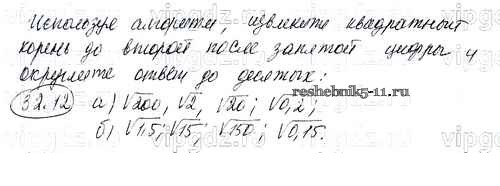 Используя алгоритм, извлеките квадратный
корень до второй после запятой цифры и
округлите ответ до десятых:
32.12 а) √200, √2, √20; √0,2;
reshebnik5-11.ru
б) √1,5; √15; √150; √0,15.